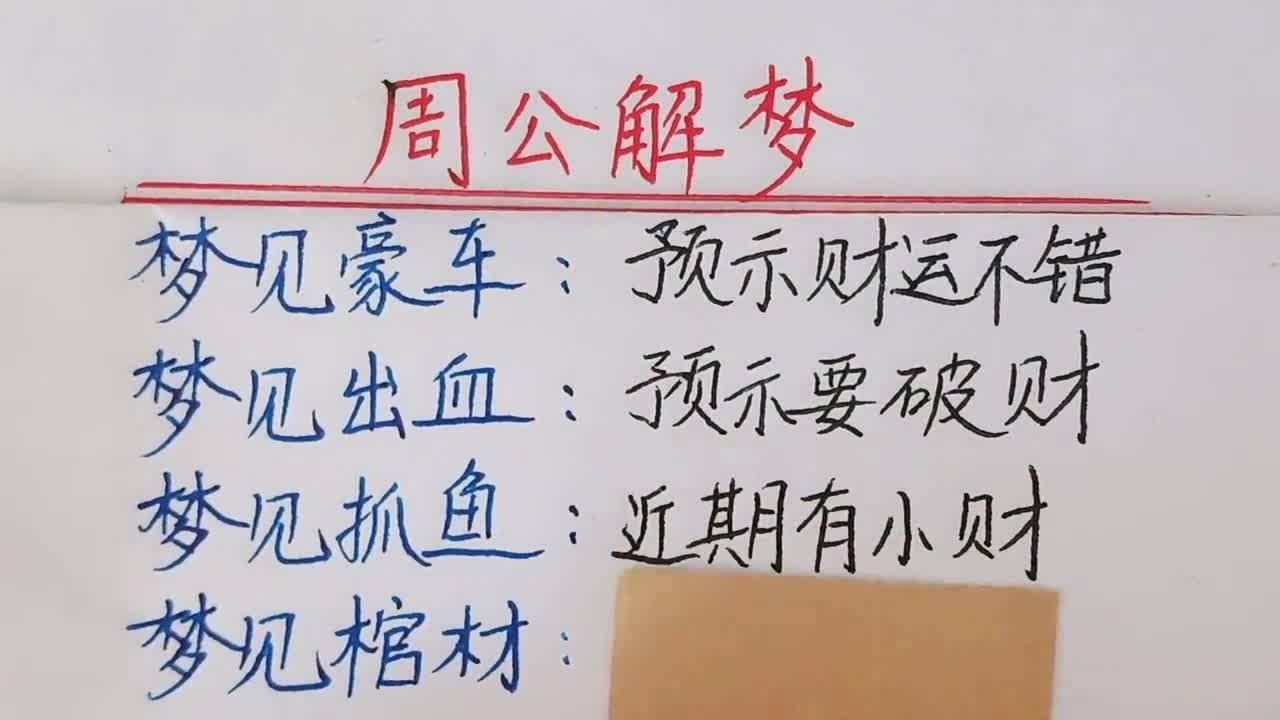 周公解梦
梦见豪车：预示财运不错
梦见出血：预示要破财
梦见抓鱼：近期有小财
梦见棺材：